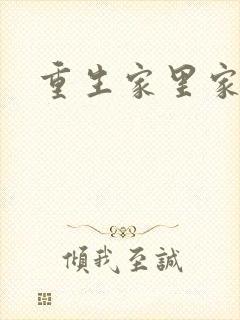 重生家里家
傾我至誠